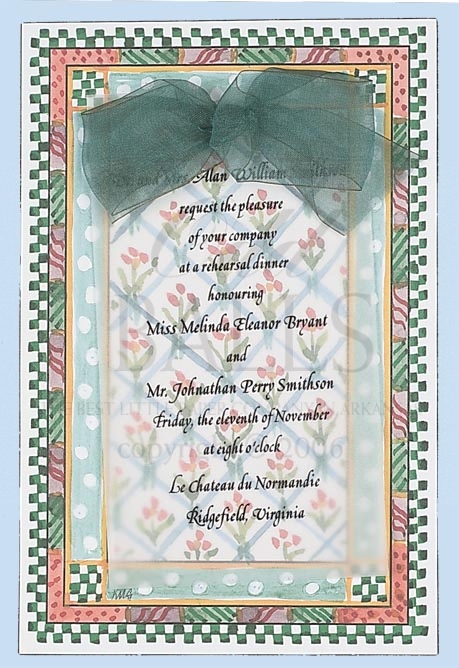 Dr. and Mrs. Alan William Smithson
request the pleasure
of your company
at a rehearsal dinner
honouring
Miss Melinda Eleanor Bryant
and
Mr. Johnathan Perry Smithson
Friday, the eleventh of November
at eight o'clock
Le Chateau du Normandie
Ridgefield, Virginia
BALLS
BEST LITTLE
ARKAN
copyright 2006